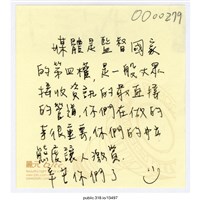 0000279
媒體是監督國家
的第四權,是一般大眾
接收資訊的最直接
的管道,你們在做的
事很重要,你們的
態度讓人激賞,
辛苦你們了
public.318.io/15497